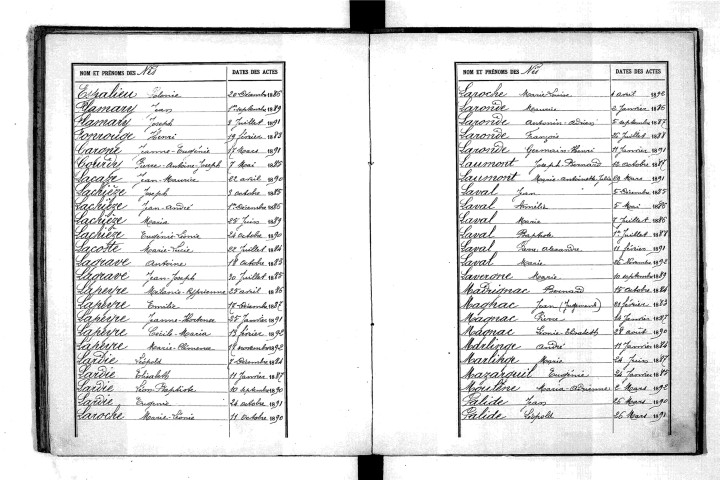 NOM ET PRÉNOMS DES Nés DATES DES ACTES
Polonie 20 Décembre 1886
Flamary Jean 1er septembre 1889
Flamary Joseph 8 Juillet 1891
Fonrouge Henri 19 février 1883
Jeanne-Eugénie 7 Mars 1891
Pierre-Antoine-Joseph 7 Mai 1885
Lacaze Jean Maurice 22 avril 1890
Lachièze Joseph 3 octobre 1885
Lachièze Jean-André 1er Décembre 1886
Lachièze Maria 25 Juin 1889
Lachièze Eugénie-Léonie 24 octobre 1890
Lacoste Marie-Lucie 22 Juillet 1884
Lagrave Antoine 18 octobre 1883
Lagrave Jean Joseph 30 Juillet 1885
Lapeyre Mélanie-Cyprienne 25 avril 1886
Lapeyre Emilie 16 Décembre 1887
Lapeyre Jeanne-Hortense 25 Janvier 1891
Lapeyre Cécile-Maria 13 février 1892
Lapeyre Marie-Climena 18 novembre 1892
Lardie Léopold 7 Décembre 1884
Lardie Elisabeth 11 Janvier 1887
Lardie Léon Baptiste 10 septembre 1890
Lardie Eugénie 24 octobre 1891
Laroche Marie-Léonie 11 octobre 1890
NOM ET PRÉNOMS DES Nés DATES DES ACTES
Laroche Marie-Louise avril 1892
Laronde Maurice 2 Janvier 1886
Laronde Antonin-Adrien 5 septembre 1887
Laronde François 25 Juillet 1888
Laronde Germain-Henri 19 Janvier 1891
Laumont Joseph-Bernard 12 octobre 1887
Laumont Marie-Antoinette 29 Mars 1891
Laval Jean 5 Décembre 1885
Laval 5 Mai 1886
Laval Maria 7 Juillet 1886
Laval Baptiste 1er Juillet 1888
Laval Pierre Alexandre 11 février 1891
Laval Marie 26 Novembre 1892
Lavergne Marie 10 septembre 1889
Madrignac Bernand 15 octobre 1884
Magnac Jean (Jugement) 23 février 1883
Magnac Pierre 24 Janvier 1887
Magnac Léonie-Elisabeth 28 août 1890
Marlinge André 11 Janvier 1884
Marlinge Marie 24 Juin 1887
Mazarguil Eugénie 24 Janvier 1885
Maria-Adrienne 2 Mars 1892
Palide Jean 25 Mars 1890
Palide Léopold 26 Mars 1891